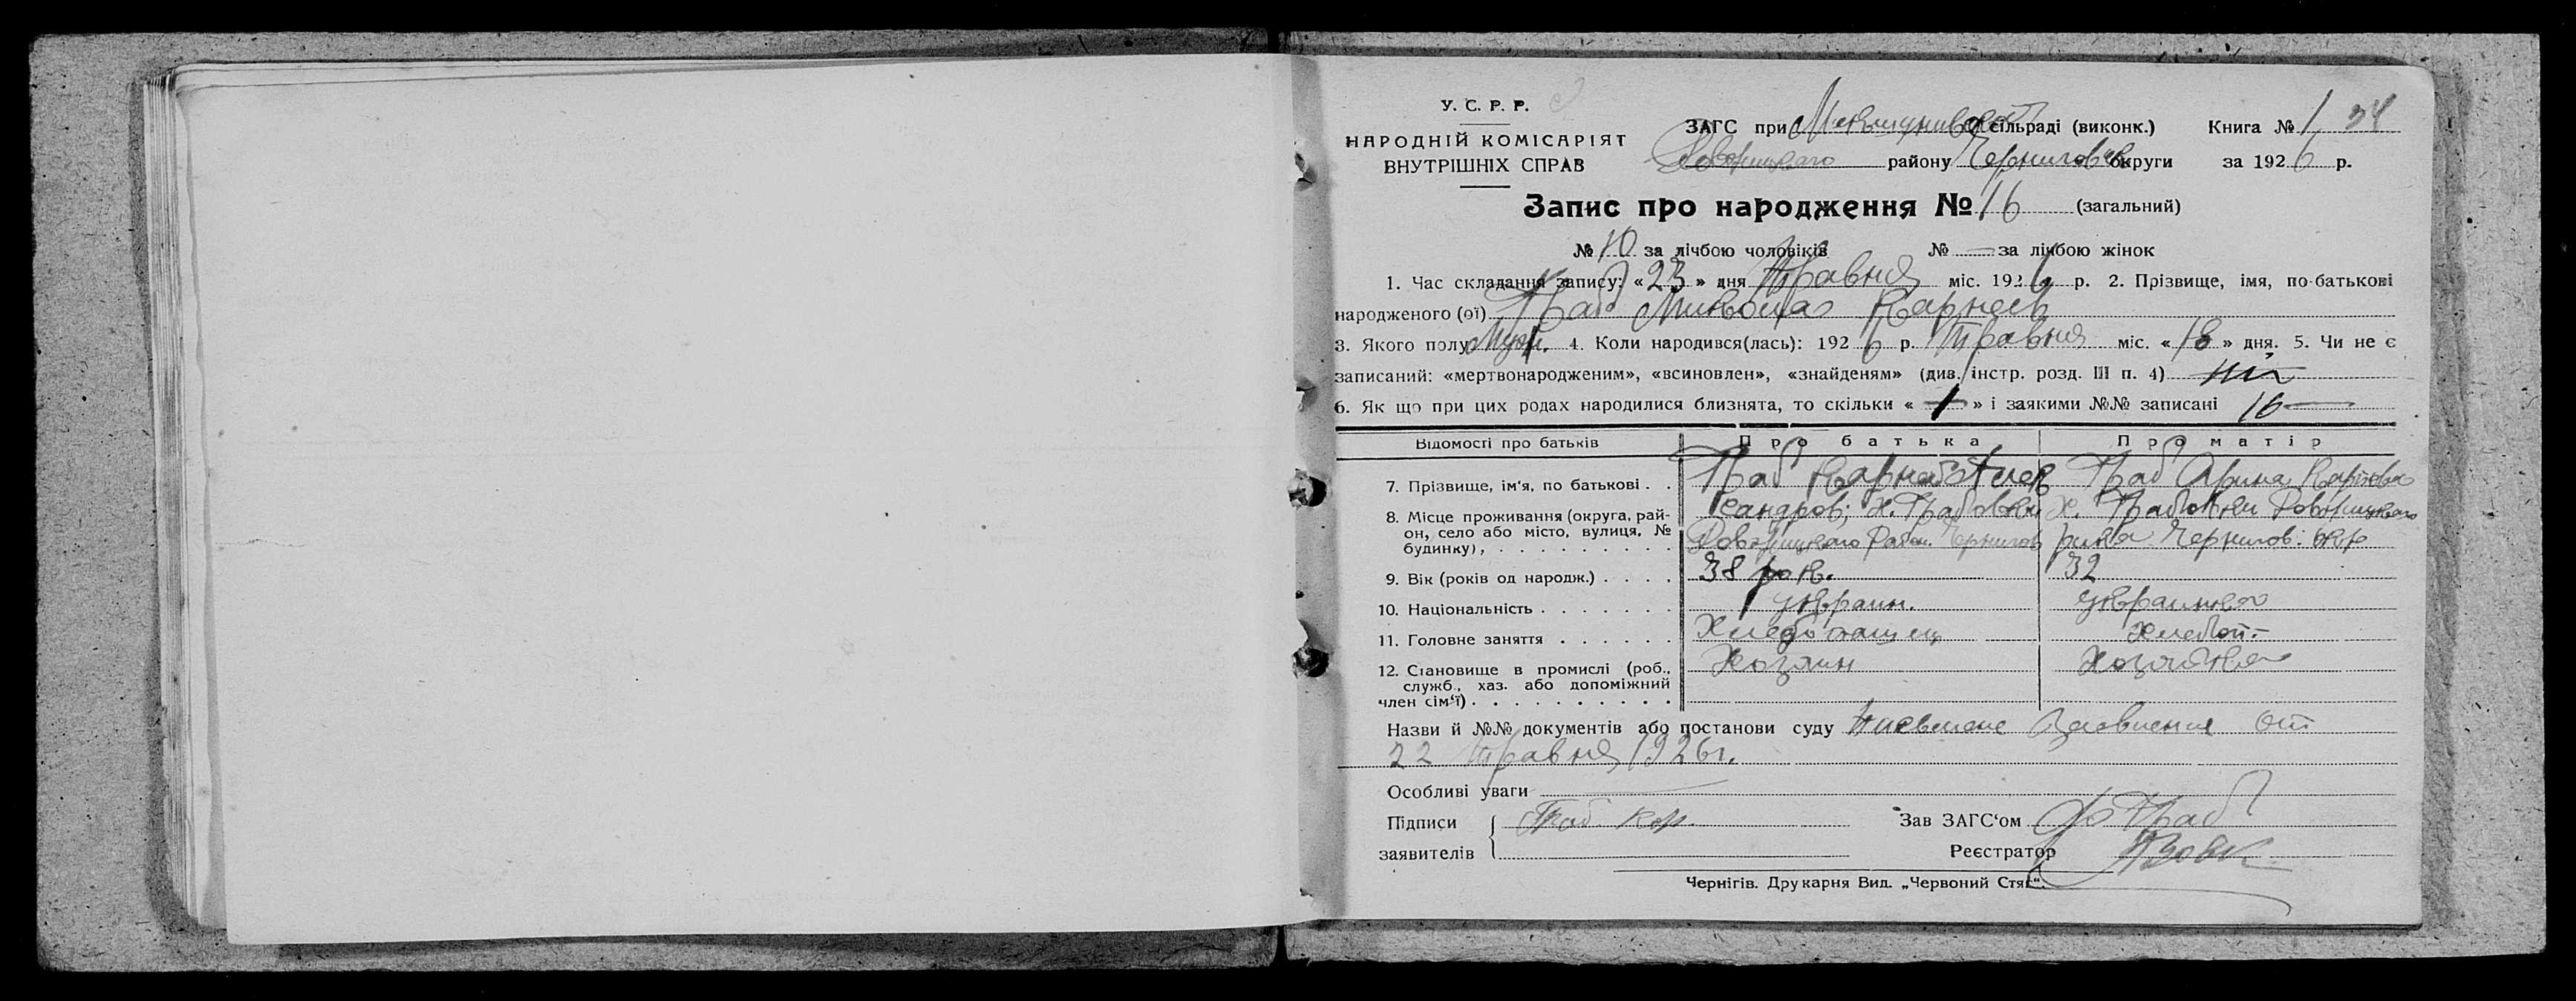 У. С. Р. Р.
НАРОДНІЙ КОМІСАРІЯТ
ВНУТРІШНІХ СПРАВ
ЗАГС при сільраді (виконк.) Книга № 1 34
району Чернигов округи за 1926 р.
Запис про народження № 16 (загальний)
№ 10 за лічбою чоловіків № — за лічбою жінок
1. Час складання запису: «23» дня Травня міс. 1926 р. 2. Прізвище, імя, по-батькові
народженого (ої) Граб Микола Карнеев
3. Якого полу Муж. 4. Коли народився(лась): 1926 р. Травня міс. «18» дня. 5. Чи не є
записаний: «мертвонародженим», «всиновлен», «знайденям» (див. інстр. розд. III п. 4)
6. Як що при цих родах народилися близнята, то скільки « 1 » і заякими №№ записані 16 —
Відомості про батьків Про батька Про матір
7. Прізвище, ім'я, по батькові . . Граб Граб Арина
8. Місце проживання (округа, рай-
он, село або місто, вулиця, №
будинку), . . . . . . . . . . Чернигов. окр
9. Вік (років од народж.) . . . . 38 рок. 32
10. Національність . . . . . . . украин. украинка
11. Головне заняття . . . . . . Хлебопашец Хлебоп.
12. Становище в промислі (роб.,
служб., хаз. або допоміжний
член сім'ї) . . . . . . . . . . Хозяин Хозяйка
Назви й №№ документів або постанови суду от
22 Травня 1926 г.
Особливі уваги
Підписи Граб Кор. Зав ЗАГС'ом Граб
заявителів Реєстратор Вовк
Чернігів. Друкарня Вид. „Червоний Стяг“.